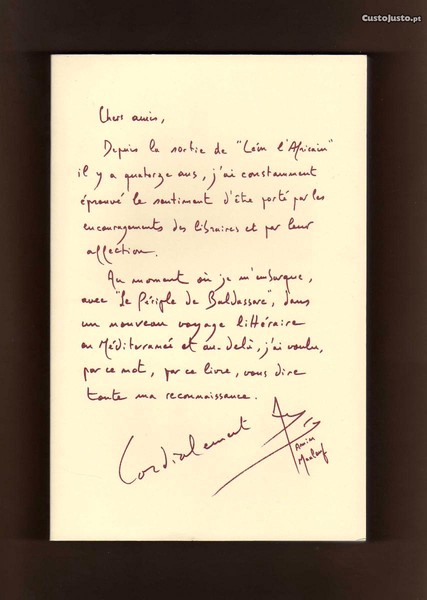 CustoJusto.pt
Chers amis,
Depuis la sortie de "Léon l'Africain"
il y a quatorze ans, j'ai constamment
éprouvé le sentiment d'être porté par les
encouragements des libraires et par leur
affection.
Au moment où je m'embarque,
avec "Le Périple de Baldassare", dans
un nouveau voyage littéraire
en Méditerranée et au-delà, j'ai voulu,
par ce mot, par ce livre, vous dire
toute ma reconnaissance.
Cordialement
Amin
Maalouf